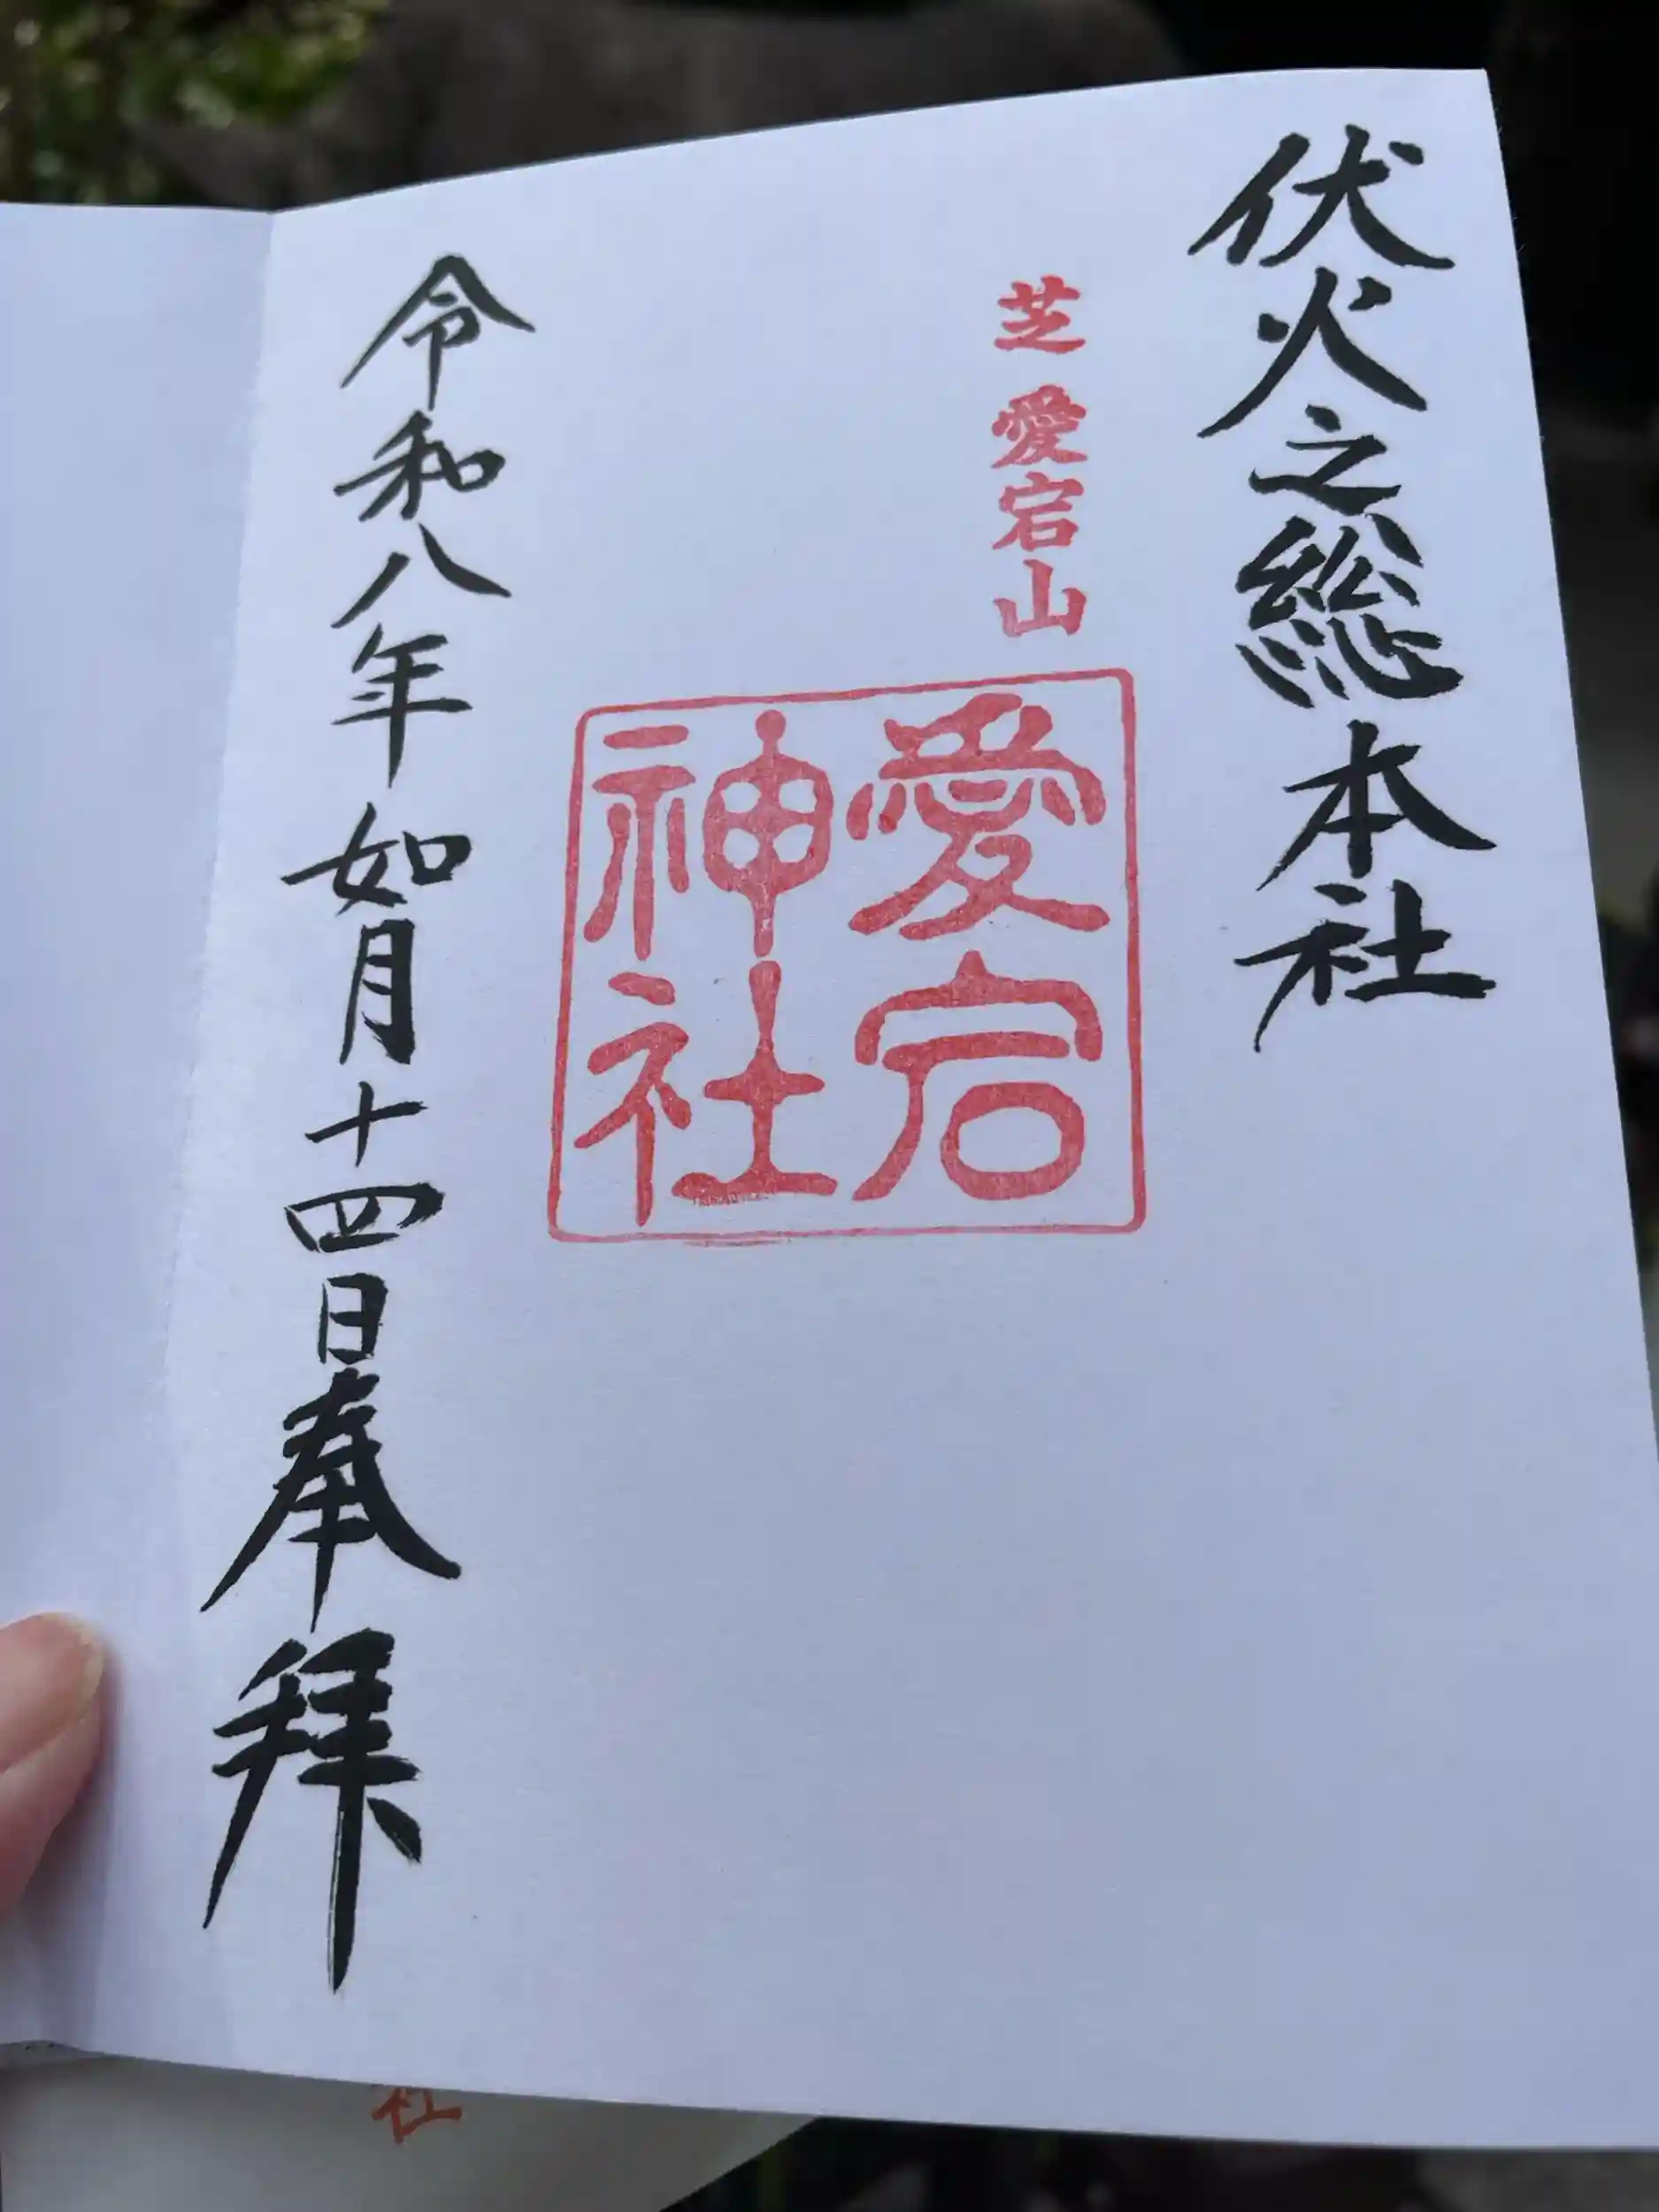 伏火之総本社
芝 愛宕山
愛宕
神社
令和八年 如月十四日奉拜
社